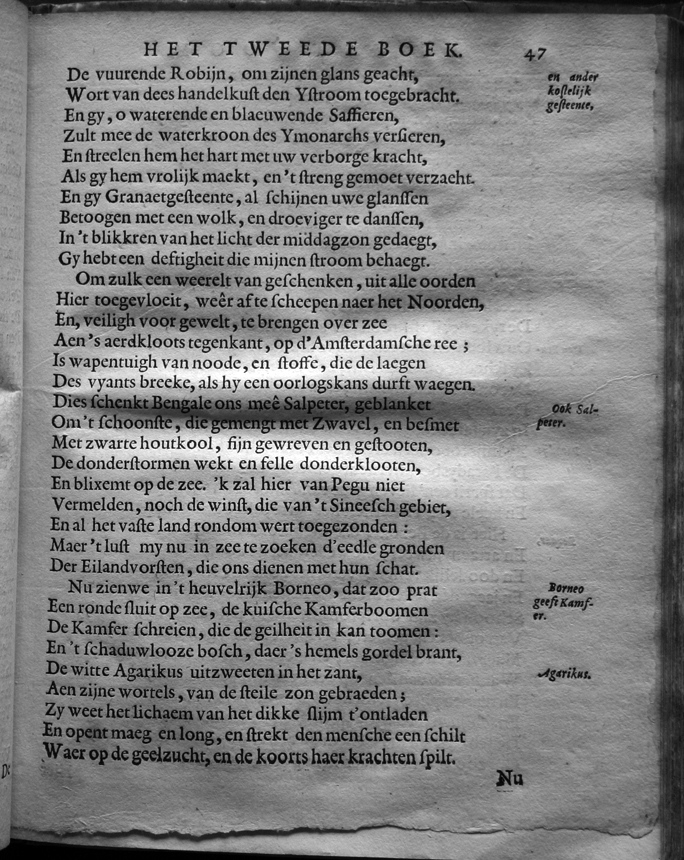 HET TWEEDE BOEK. 47
De vuurende Robijn, om zijnen glans geacht,
Wort van dees handelkuſt den Yſtroom toegebracht.
En gy, o waterende en blaeuwende Saffieren,
Zult mee de waterkroon des Ymonarchs verſieren,
En ſtreelen hem het hart met uw verborge kracht,
Als gy hem vrolijk maekt, en 't ſtreng gemoet verzacht.
En gy Granaetgeſteente, al ſchijnen uwe glanſſen
Betoogen met een wolk, en droeviger te danſſen,
In 't blikkren van het licht der middagzon gedaegt,
Gy hebt een deftigheit die mijnen ſtroom behaegt.
Om zulk een weerelt van geſchenken, uit alle oorden
Hier toegevloeit, weêr af te ſcheepen naer het Noorden,
En, veiligh voor gewelt, te brengen over zee
Aen 's aerdkloots tegenkant, op d'Amſterdamſche ree;
Is wapentuigh van noode, en ſtoffe, die de laegen
Des vyants breeke, als hy een oorlogskans durft waegen.
Dies ſchenkt Bengale ons meê Salpeter, geblanket
Om 't ſchoonſte, die gemengt met Zwavel, en beſmet
Met zwarte houtkool, fijn gewreven en geſtooten,
De donderſtormen wekt en felle donderklooten,
En blixemt op de zee. 'k zal hier van Pegu niet
Vermelden, noch de winſt, die van 't Sineeſch gebiet,
En al het vaſte land rondom wert toegezonden:
Maer 't luſt my nu in zee te zoeken d'eedle gronden
Der Eilandvorſten, die ons dienen met hun ſchat.
Nu zienwe in 't heuvelrijk Borneo, dat zoo prat
Een ronde ſluit op zee, de kuiſche Kamferboomen
De Kamfer ſchreien, die de geilheit in kan toomen:
En 't ſchaduwlooze boſch, daer 's hemels gordel brant,
De witte Agarikus uitzweeten in het zant,
Aen zijne wortels, van de ſteile zon gebraeden;
Zy weet het lichaem van het dikke ſlijm t'ontladen
En opent maeg en long, en ſtrekt den menſche een ſchilt
Waer op de geelzucht, en de koorts haer krachten ſpilt.
Nu
en ander
koſtelijk
geſteente,
Ook Sal-
peter.
Borneo
geeft Kamf-
er.
Agarikus.